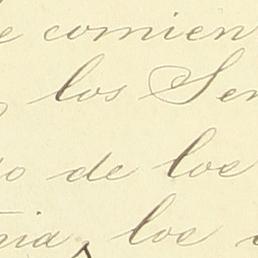 e comien
los Sen
o de los
nia, los